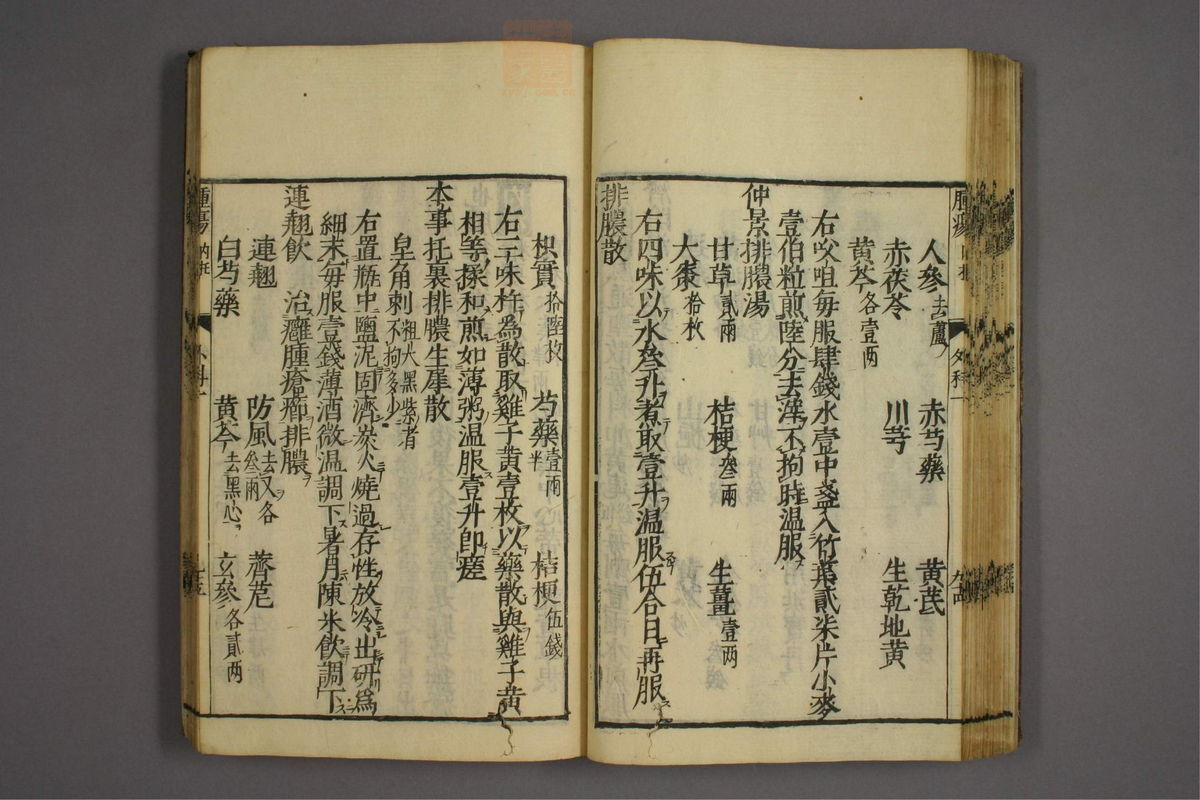 人參去蘆 赤芍藥 黄芪
赤茯苓 川芎 生乾地黄
黄芩各壹两
右㕮咀每服肆錢水壹中盞入竹葉貳柒片小麥
壹伯粒煎陸分去滓不拘時温服
仲景排膿湯
甘草貳兩 桔梗叁兩 生薑壹两
大棗拾枚
右四味以水叁升煮取壹升温服伍合日再服
排膿散
枳實拾陸枚 芍藥壹兩半 桔梗伍錢
右三味杵為散取雞子黄壹枚以藥散與雞子黄
相等揉和煎如薄粥温服壹升即瘥
本事托裏排膿生犀散
皂角刺粗大黑紫者不拘多少
右置瓶中鹽泥固濟炭火燒過存性放冷出研爲
細末每服壹錢薄酒微温調下暑月陳米飲調下
連翹飲 治癰腫瘡癤排膿
連翹 防風去叉各叁兩 薺苨
白芍藥 黄芩去黑心 玄參各貳两
腫瘍